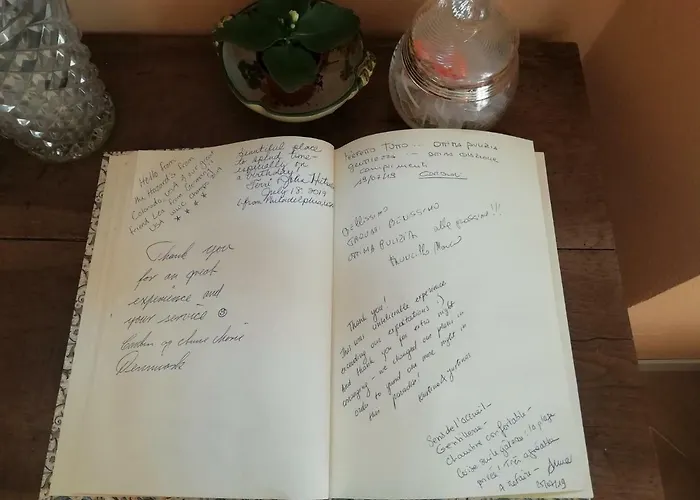 Hello from
the Hazards from
Colorado, USA & our great
friend Lea from Germany
USA
beautiful place
to spend time -
especially on
a birthday!
July 13, 2019
from Philadelphia, USA
Thank you
for an great
experience and
your service ☺
Denmark
PERFETTO TUTTO... OTTIMA PULIZIA
OTTIMA COLAZIONE
COMPLIMENTI
19/07/19
BELLISSIMO
BENISSIMO
OTTIMA PULIZIA alla prossima!!!
Thank you!
This was unbelievable experience
exceeding our expectations :)
And thank you for extra night
arranging - we changed our plans in
order to spend one more night in
this paradise!
Sens de l'accueil -
Gentillesse -
Chambre confortable -
la plage
privée! Très agréable
A refaire -